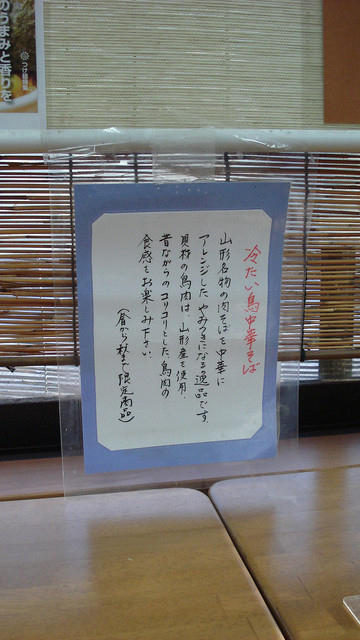 冷たい鳥中華そば
山形名物の肉そばを中華に
アレンジした、やみつきになる逸品です。
具材の鳥肉は、山形産を使用、
昔ながらのコリコリとした鳥肉の
食感をお楽しみ下さい。
(春から秋まで限定商品)
のうまみと香りを